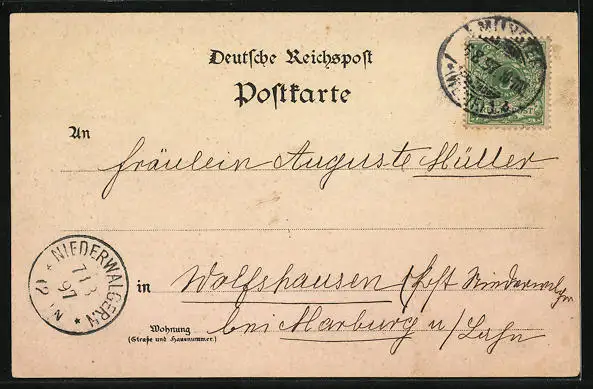 Deutsche Reichspost
Postkarte
An
Fräulein Auguste Müller
in Wolfshausen (Post Niederwalgern
bei Marburg a/Lahn
Wohnung
(Straße und Hausnummer.)
* NIEDERWALGERN *
7 13
97